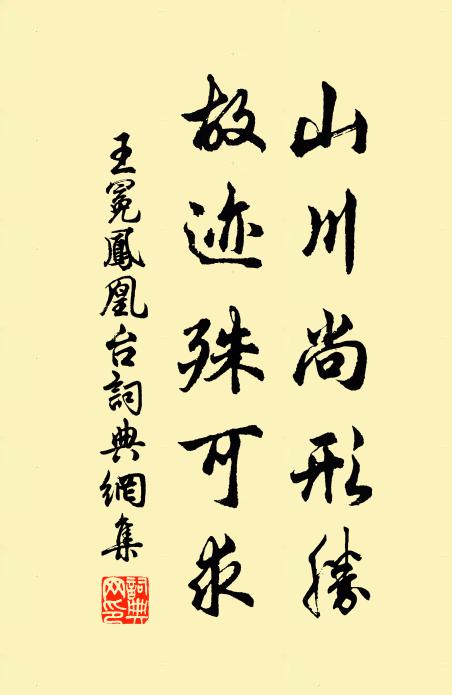 山川尚形勝
故迹殊可求
王冕鳳凰台詞典網集
詞典网印